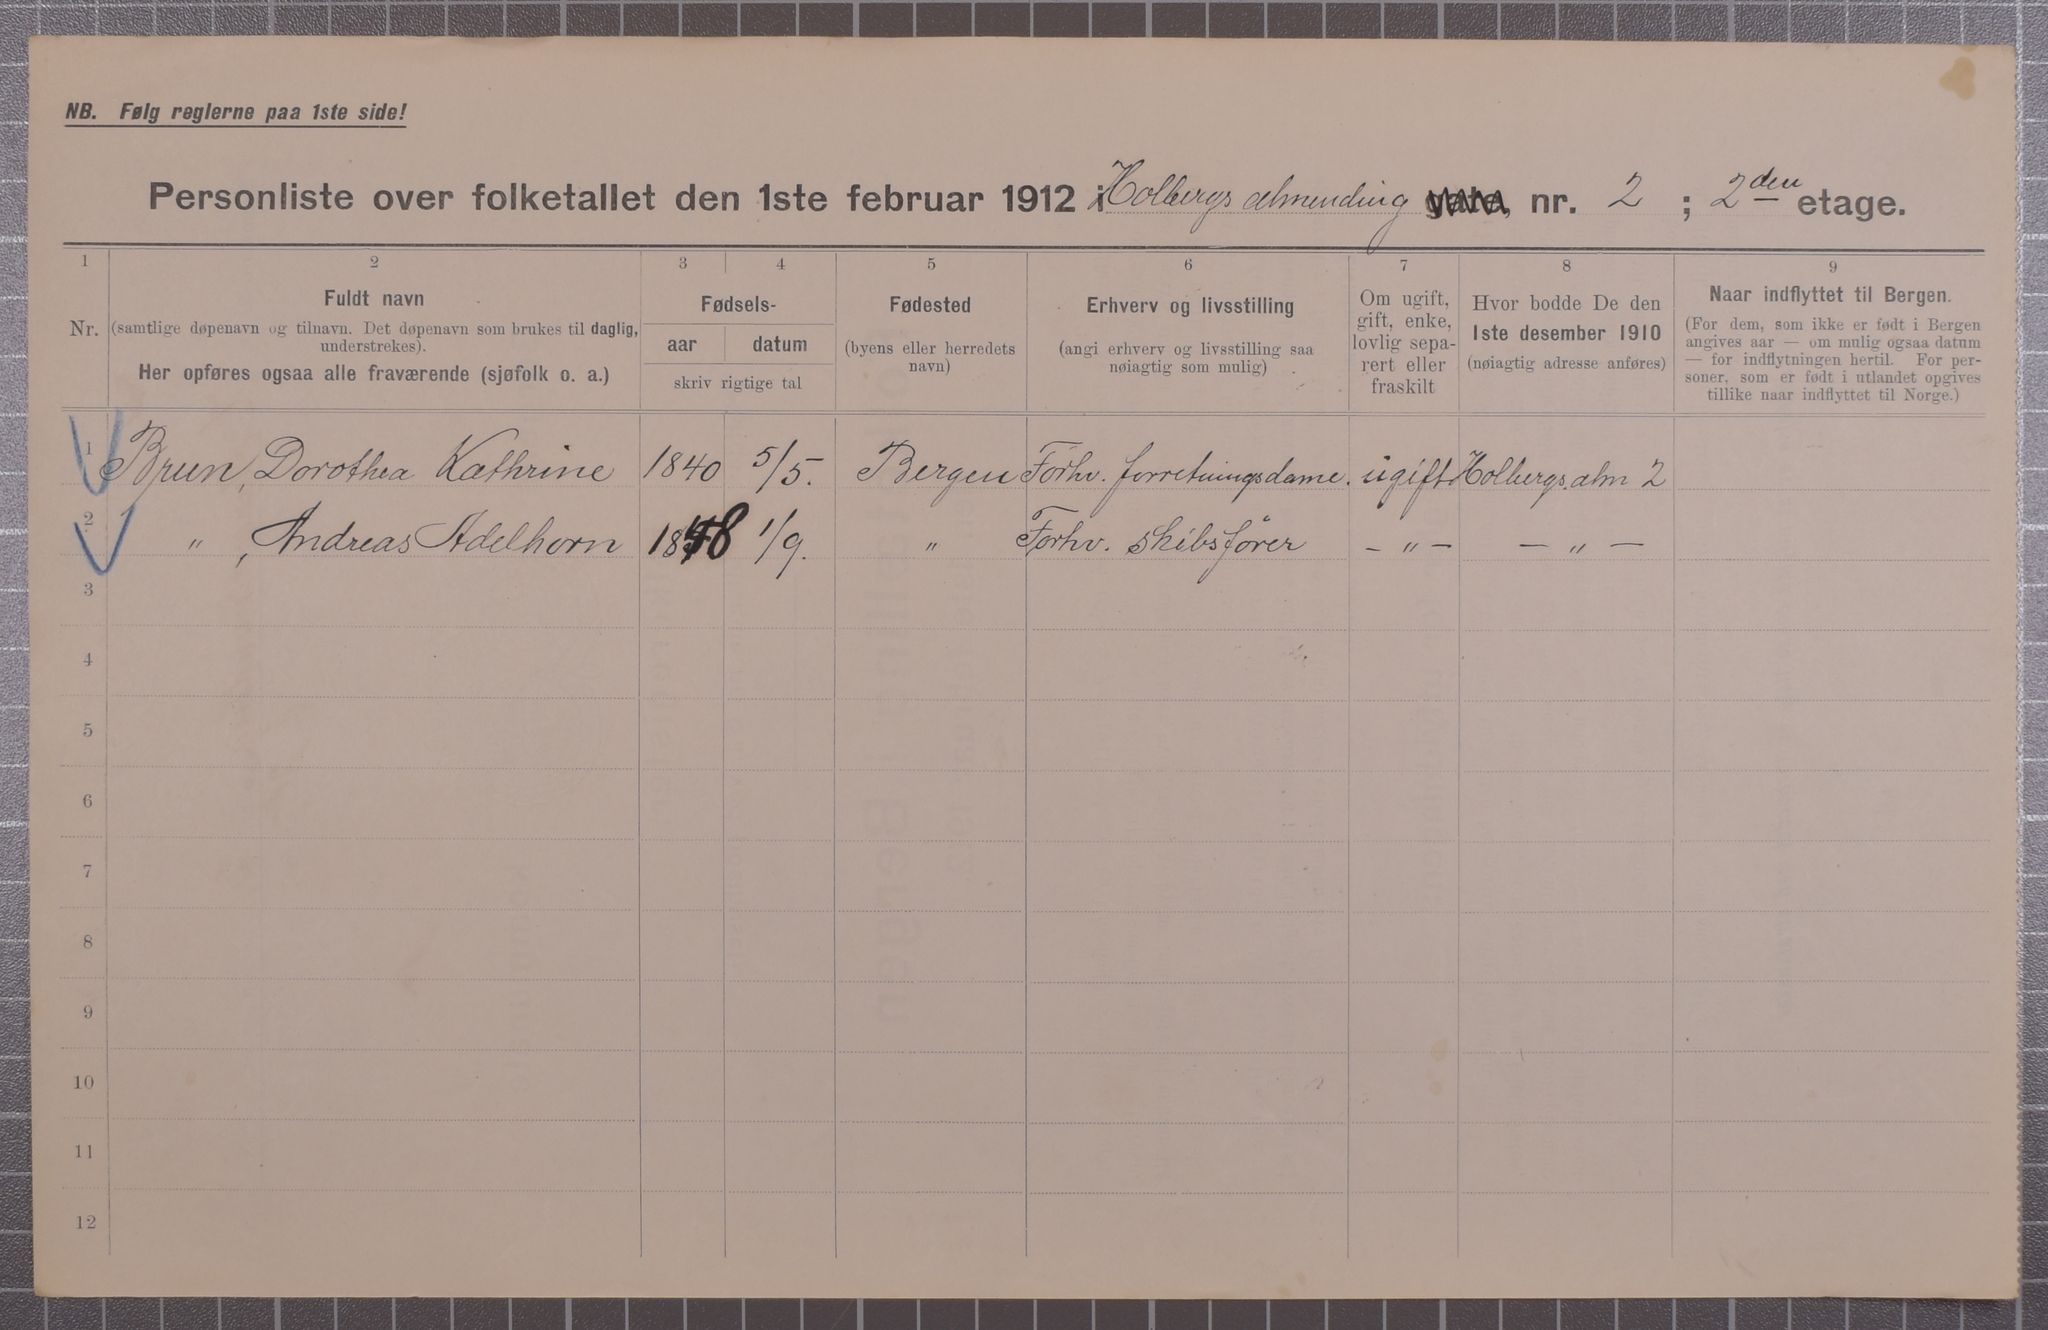 NB. Følg reglerne paa 1ste side!
Personliste over folketallet den 1ste februar 1912 i Holbergs almending nr. 2 ; 2den etage.
1 2 3 4 5 6 7 8 9
Nr.
Fuldt navn
(samtlige døpenavn og tilnavn. Det døpenavn som brukes til daglig,
understrekes).
Her opføres ogsaa alle fraværende (sjøfolk o. a.)
Fødsels-
aar datum
skriv rigtige tal
Fødested
(byens eller herredets
navn)
Erhverv og livsstilling
(angi erhverv og livsstilling saa
nøiagtig som mulig)
Om ugift,
gift, enke,
lovlig sepa-
rert eller
fraskilt
Hvor bodde De den
1ste desember 1910
(nøiagtig adresse anføres)
Naar indflyttet til Bergen.
(For dem, som ikke er født i Bergen
angives aar — om mulig ogsaa datum
— for indflytningen hertil. For per-
soner, som er født i utlandet opgives
tillike naar indflyttet til Norge.)
1 Brun, Dorothea Kathrine 1840 5/5. Bergen Forhv. forretningsdame. ugift Holbergs alm 2
2 " , Andreas Adelhorn 1848 1/9. " Forhv. skibsfører – " – – " –
3
4
5
6
7
8
9
10
11
12